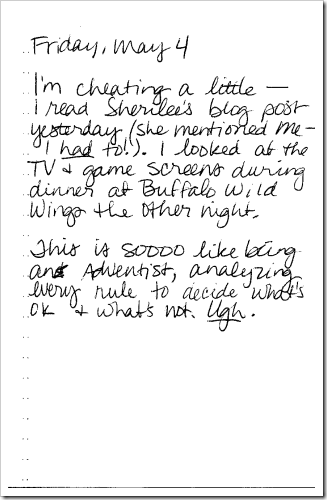 Friday, May 4
I'm cheating a little —
I read Sherilee's blog post
yesterday (she mentioned me -
I had to!). I looked at the
TV & game screens during
dinner at Buffalo Wild
Wings the other night.
This is soooo like being
an Adventist, analyzing
every rule to decide what's
OK & what's not. Ugh.